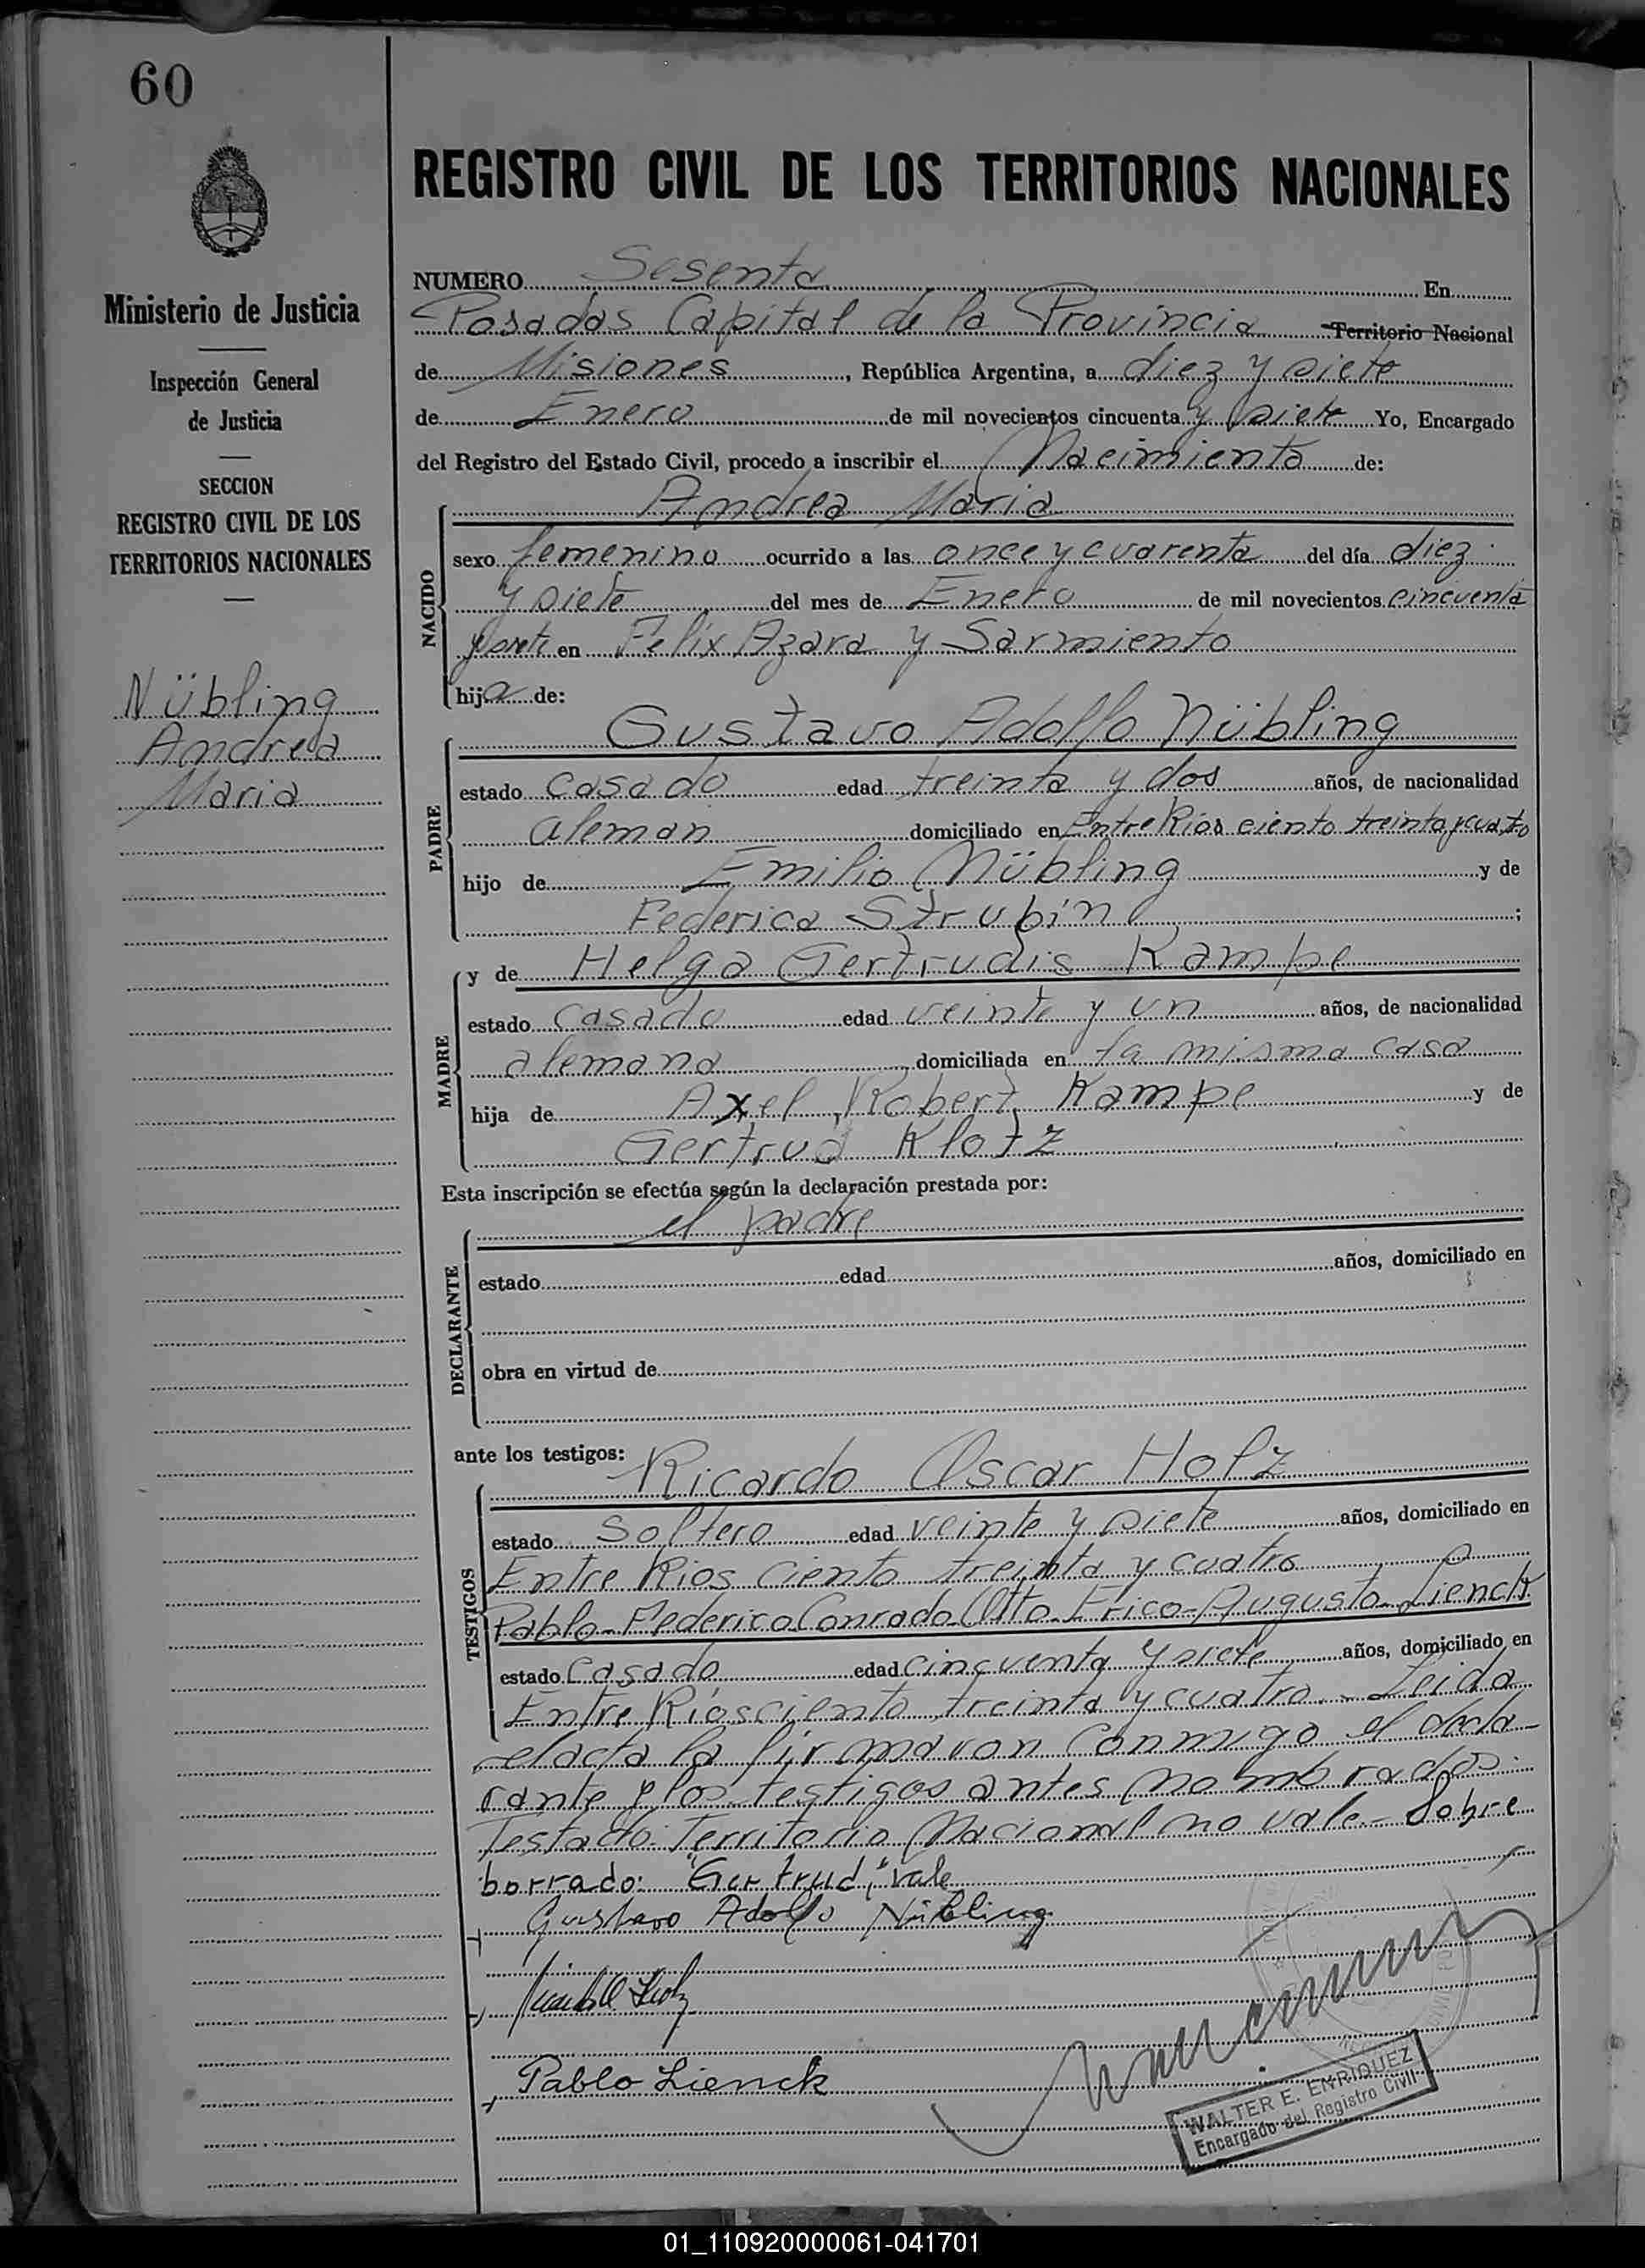 60
Ministerio de Justicia
Inspección General
de Justicia
SECCION
REGISTRO CIVIL DE LOS
TERRITORIOS NACIONALES
Nübling
Andrea
Maria
REGISTRO CIVIL DE LOS TERRITORIOS NACIONALES
NUMERO Sesenta En
Posadas Capital de la Provincia Territorio Nacional
de Misiones, República Argentina, a diez y siete
de Enero de mil novecientos cincuenta y siete Yo, Encargado
del Registro del Estado Civil, procedo a inscribir el Nacimiento de:
Andrea Maria
NACIDO
sexo femenino ocurrido a las once y cuarenta del día diez
y siete del mes de Enero de mil novecientos cincuenta
y siete en Felix Azara y Sarmiento
hija de:
Gustavo Adolfo Nübling
PADRE
estado casado edad treinta y dos años, de nacionalidad
aleman domiciliado en Entre Rios ciento treinta y cuatro
hijo de Emilio Nübling y de
Federica Strubin;
y de Helga Gertrudis Kampe
MADRE
estado casada edad veinte y un años, de nacionalidad
alemana domiciliada en la misma casa
hija de Axel Robert Kampe y de
Gertrud Klotz
Esta inscripción se efectúa según la declaración prestada por:
el padre
DECLARANTE
estado edad años, domiciliado en
obra en virtud de
ante los testigos:
Ricardo Oscar Holz
TESTIGOS
estado soltero edad veinte y siete años, domiciliado en
Entre Rios ciento treinta y cuatro
Pablo Federico Conrado Otto Erico Augusto Lienck
estado casado edad cincuenta y siete años, domiciliado en
Entre Rios ciento treinta y cuatro.- Leida
el acta la firmaron conmigo el decla-
rante y los testigos antes nombrados.
Testado: Territorio Nacional no vale.- Sobre
borrado: "Gertrud," vale
Gustavo Adolfo Nübling
Pablo Lienck
WALTER E. ENRIQUEZ
Encargado del Registro Civil
01_110920000061-041701